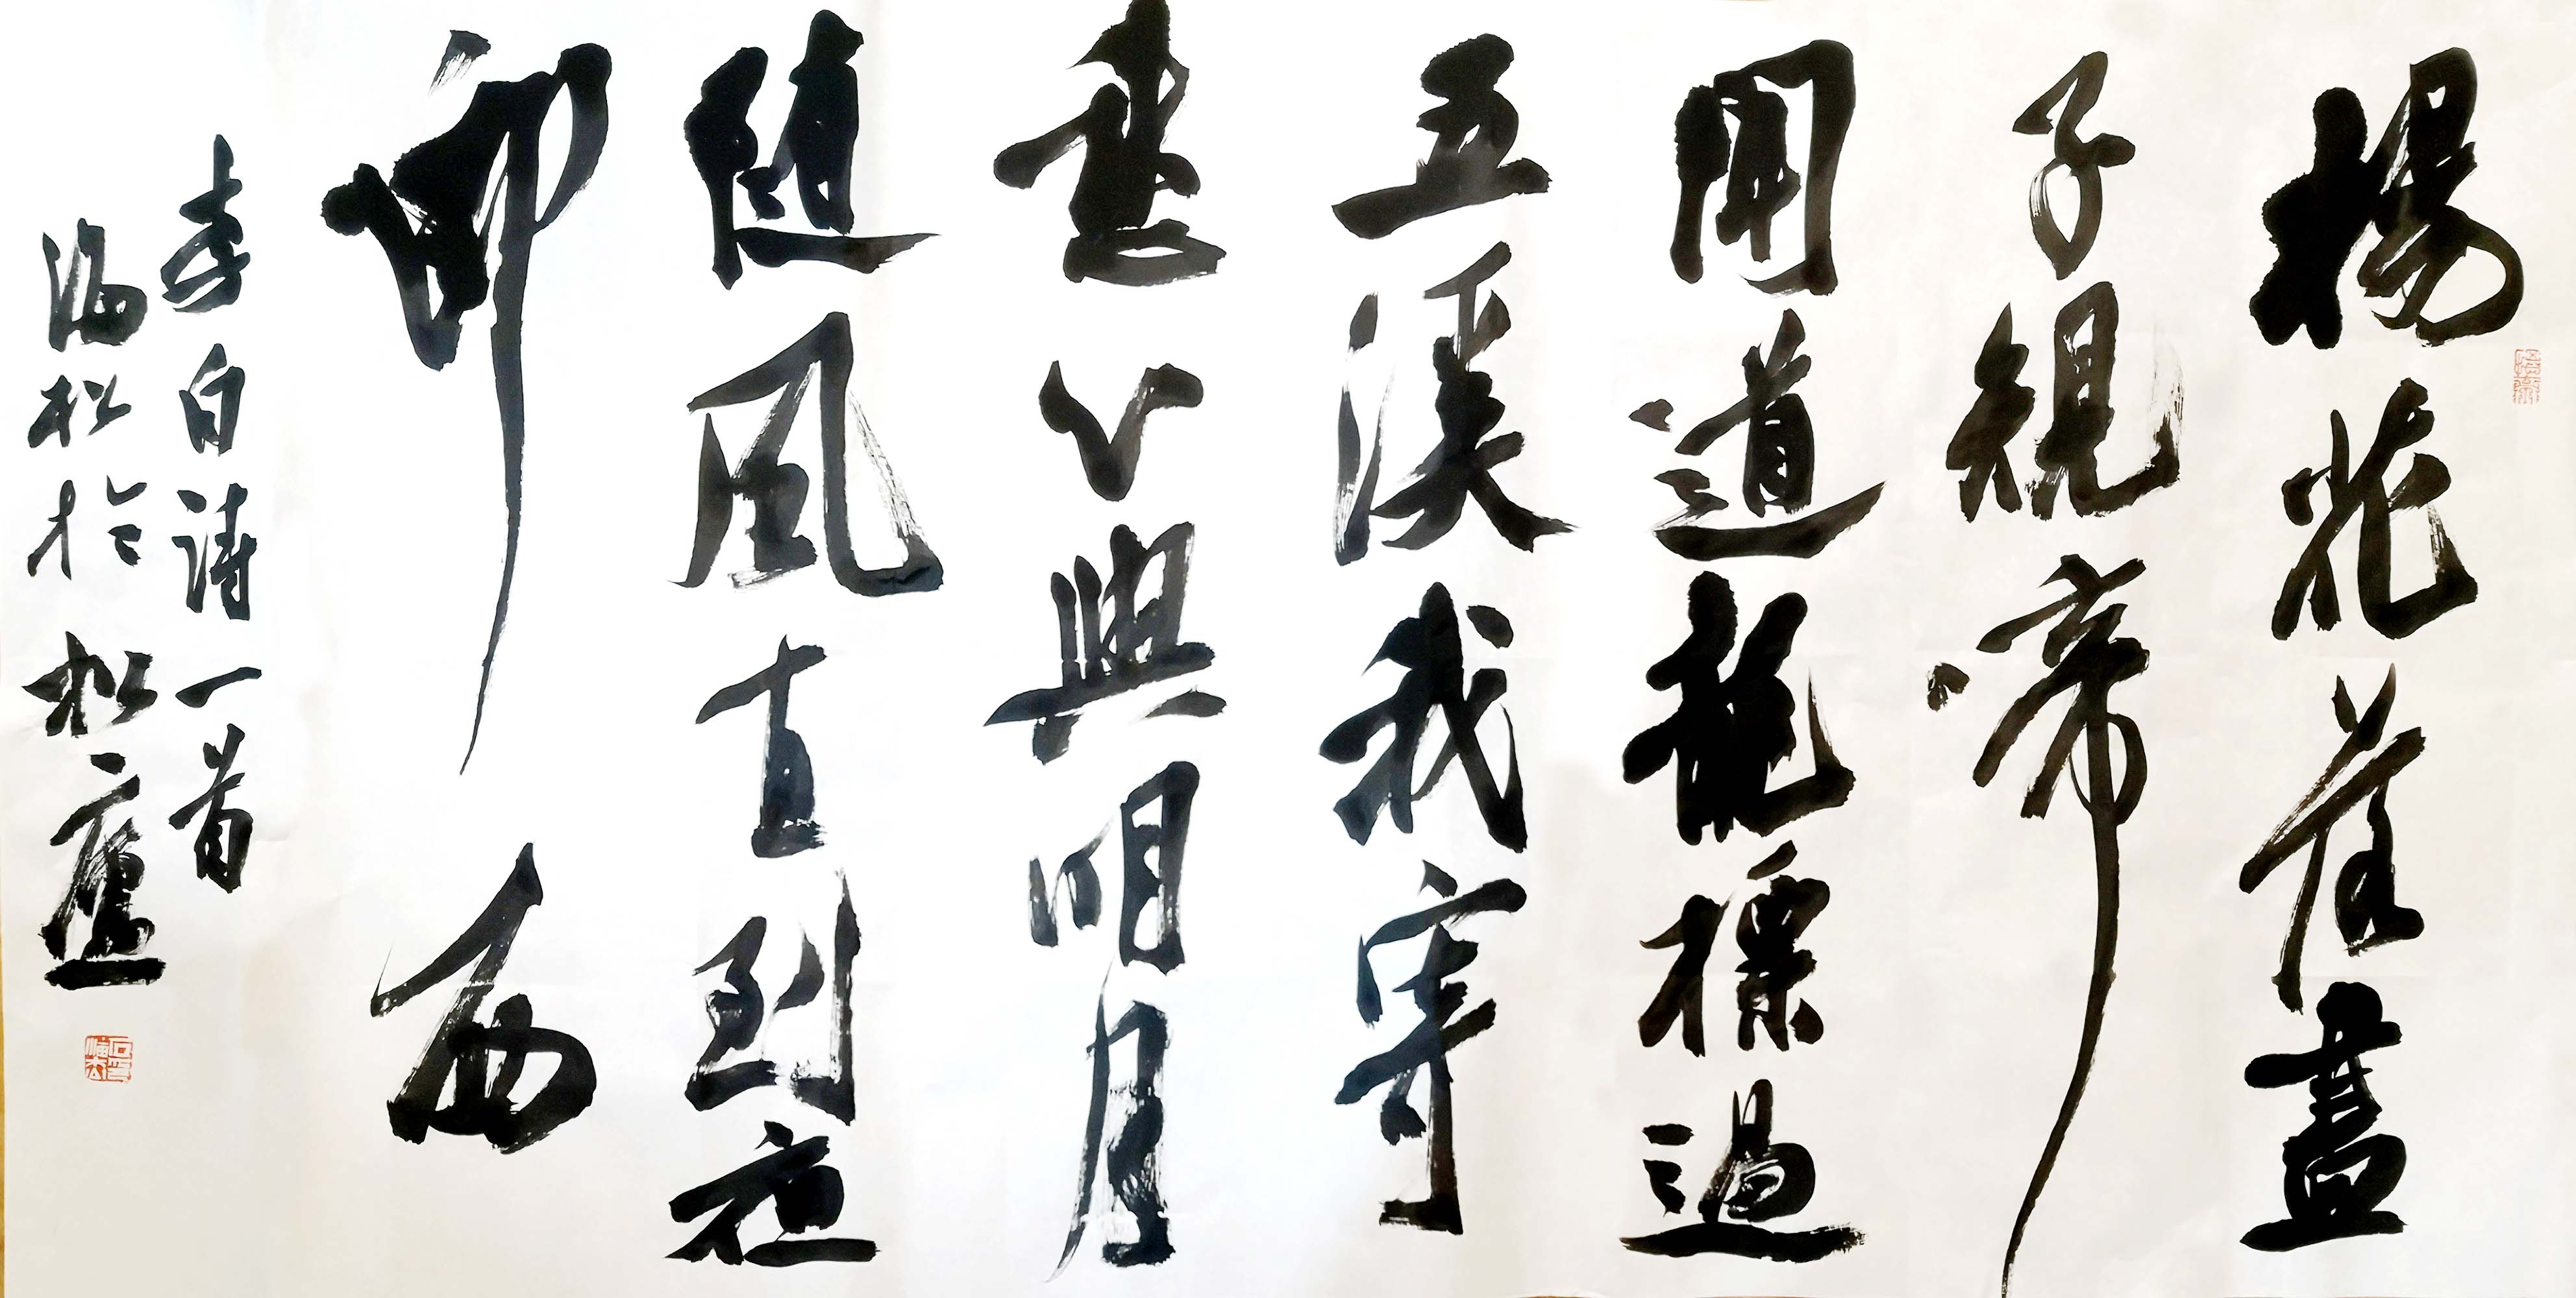 楊花落盡
子規啼
聞道龍標過
五溪我寄
愁心與明月
隨風直到夜
郎西
李白詩一首
海松於松廬